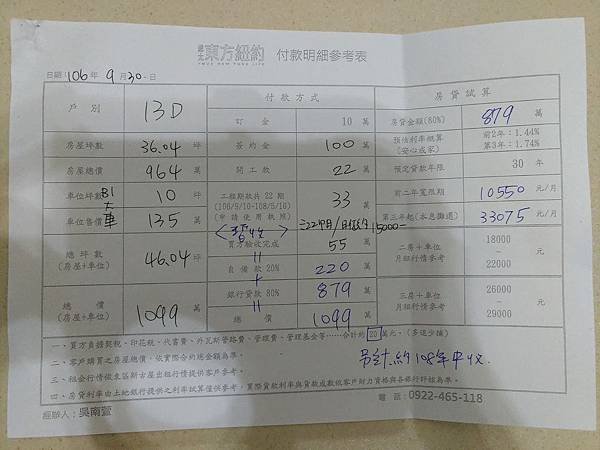 東方紐約 付款明細參考表
日期：106年9月30日
戶別 13D
房屋坪數 36.04 坪
房屋總價 964 萬
車位坪數 B1 大車 10 坪
車位售價 135 萬
總坪數
(房屋+車位) 46.04 坪
總價
(房屋+車位) 1099 萬
付款方式
訂金 10 萬
簽約金 100 萬
開工款 22 萬
工程期款共22期
(106/9/10-108/5/10)
(申請使用執照) 33 萬
=22個月/月繳約15000-
買方驗收完成 55 萬
自備款 20% 220 萬
銀行貸款 80% 879 萬
總價 1099 萬
房貸試算
房貸金額(80%) 879 萬
預估利率概算
(安心成家) 前2年：1.44%
第3年：1.74%
預定貸款年限 30 年
前二年寬限期 10550 元/月
第三年起(本息攤還) 33075 元/月
二房+車位
月租行情參考 18000
~
22000 元
三房+車位
月租行情參考 26000
~
29000 元
一、買方負擔契稅、印花稅、代書費、外瓦斯管路費、管理費、管理基金等……合計約 20 萬元。(多退少補)
二、客戶購買之房屋總價，依實際合約總金額為準。
三、租金行情依東區斯古屋出租行情提供客戶參考。
四、房貸利率由土地銀行提供之利率試算僅供參考，實際貸款利率與貸款成數依客戶財力資格與各銀行評核為準。
另計.約108年中收.
經辦人：吳南萱
電話：0922-465-118